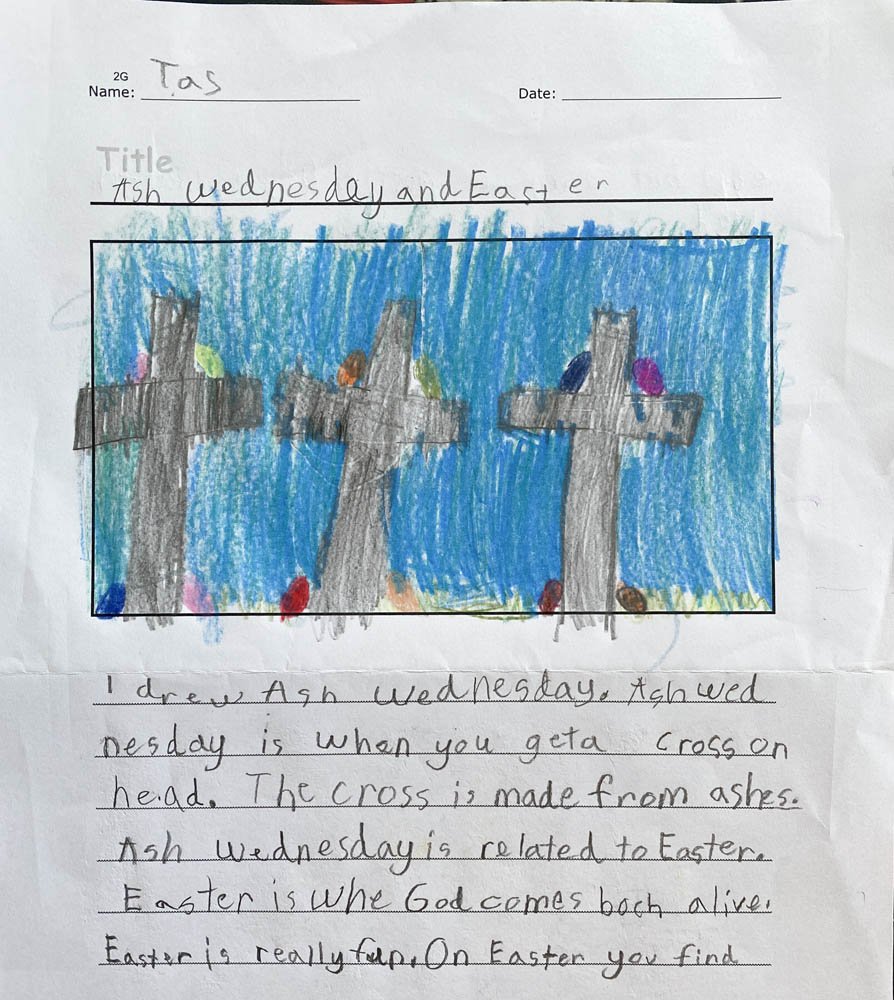 2G
Name: Tas
Date:
Title
Ash Wednesday and Easter
I drew Ash Wednesday. Ash wed
nesday is when you get a cross on
head. The cross is made from ashes.
Ash Wednesday is related to Easter.
Easter is whe God comes boch alive.
Easter is really fun. On Easter you find